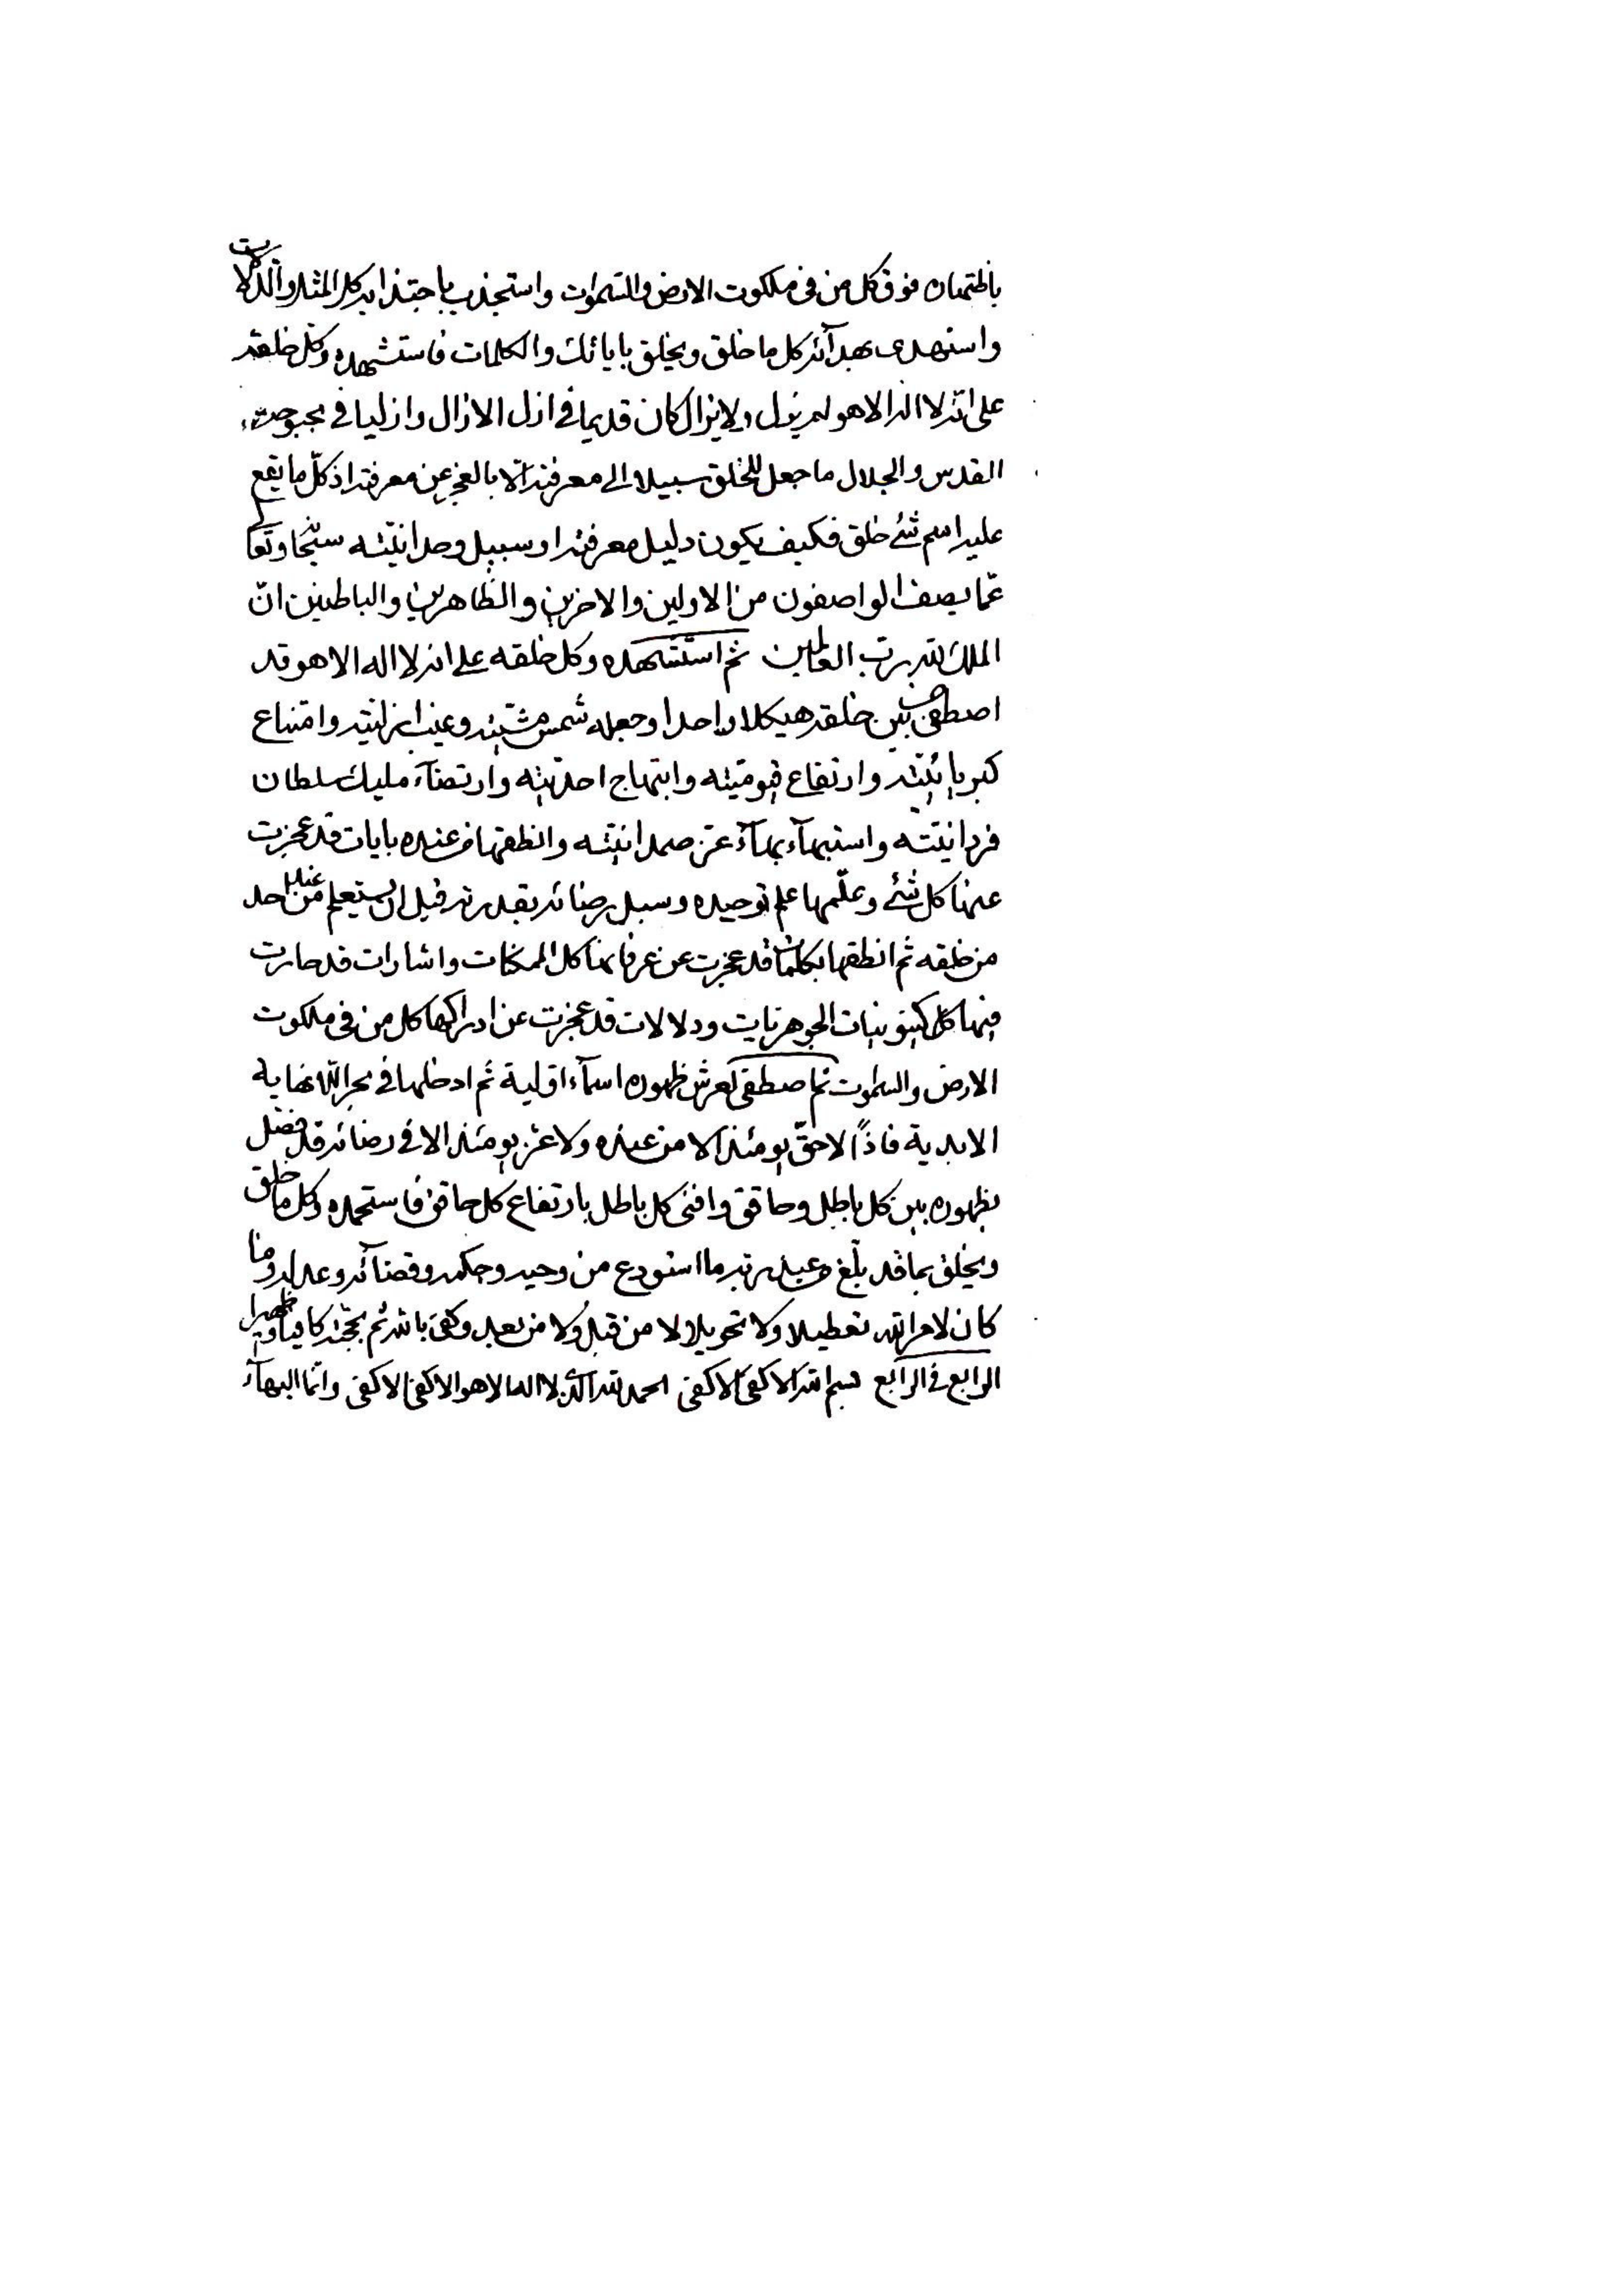 باظتهاره فوق كل من فى ملكوت الارض والسموات واستجذب باجتذابه كل المثل والدلالات
واستهدى بهدآئه كل ما خلق ويخلق باياتك والكلمات فاستشهده وكل خلقه
على انه لا اله الا هو لم يزل ولا يزال كان قديما فى ازل الازال وازليا فى
القدس والجلال ما جعل للخلق سبيلا الى معرفته الّا بالعجز عن معرفته اذ كلّ ما يقع
عليه اسم شئ خلق فكيف يكون دليل معرفته او سبيل وحدانيّته سبحانه وتعالى
عمّا يصف الواصفون من الاولين والاخرين والظاهرين والباطنين انّ
الملك لله رب العالمين ثم استشهده وكل خلقه على انه لا اله الا هو قد
اصطفى من بين خلقه هيكلا واحدا وجعله شمس مشيّته وغيب ازليته وامتناع
كبريائيّته وارتفاع قيوميّته وابتهاج احديّته وارتضآء مليك سلطان
فردانيّته واستبهآء بهآء عز صمدانيّته وانطقها من عنده بايات قد عجزت
عنها كل شئ وعلّمها علم توحيده وسبل رضائه بقدرته قبل ان يستعلم من عند احد
من خلقه ثم انطقها بكلمات قد عجزت عن عرفانها كل الممكنات واشارات قد حارت
فيها كل كينونيات الجوهريات ودلالات قد عجزت عن ادراكها كل من فى ملكوت
الارض والسموات ثم اصطفى لعرش ظهوره اسمآء اولية ثم ادخلها فى بحر اللانهاية
الابدية فاذاً لا حقّ يومئذ الا من عنده ولا عز يومئذ الا فى رضائه قد فصّل
بظهوره بين كل باطل وحاقق وافنى كل باطل بارتفاع كل حاقق فاستحمده وكل ما خلق
ويخلق بما قد بلّغ عبد ربه ما استودع من وحيه وحكمه وقضآئه وعدله وما
كان لامر الله تعطيلا ولا تحويلا لا من قبل ولا من بعد وكفى بالله ثم بحجّته كافيا وظهيرا
الرابع فى الرابع بسم الله الاكفى الاكفى الحمد لله الذى لا اله الا هو الاكفى الاكفى وانّما البهآء